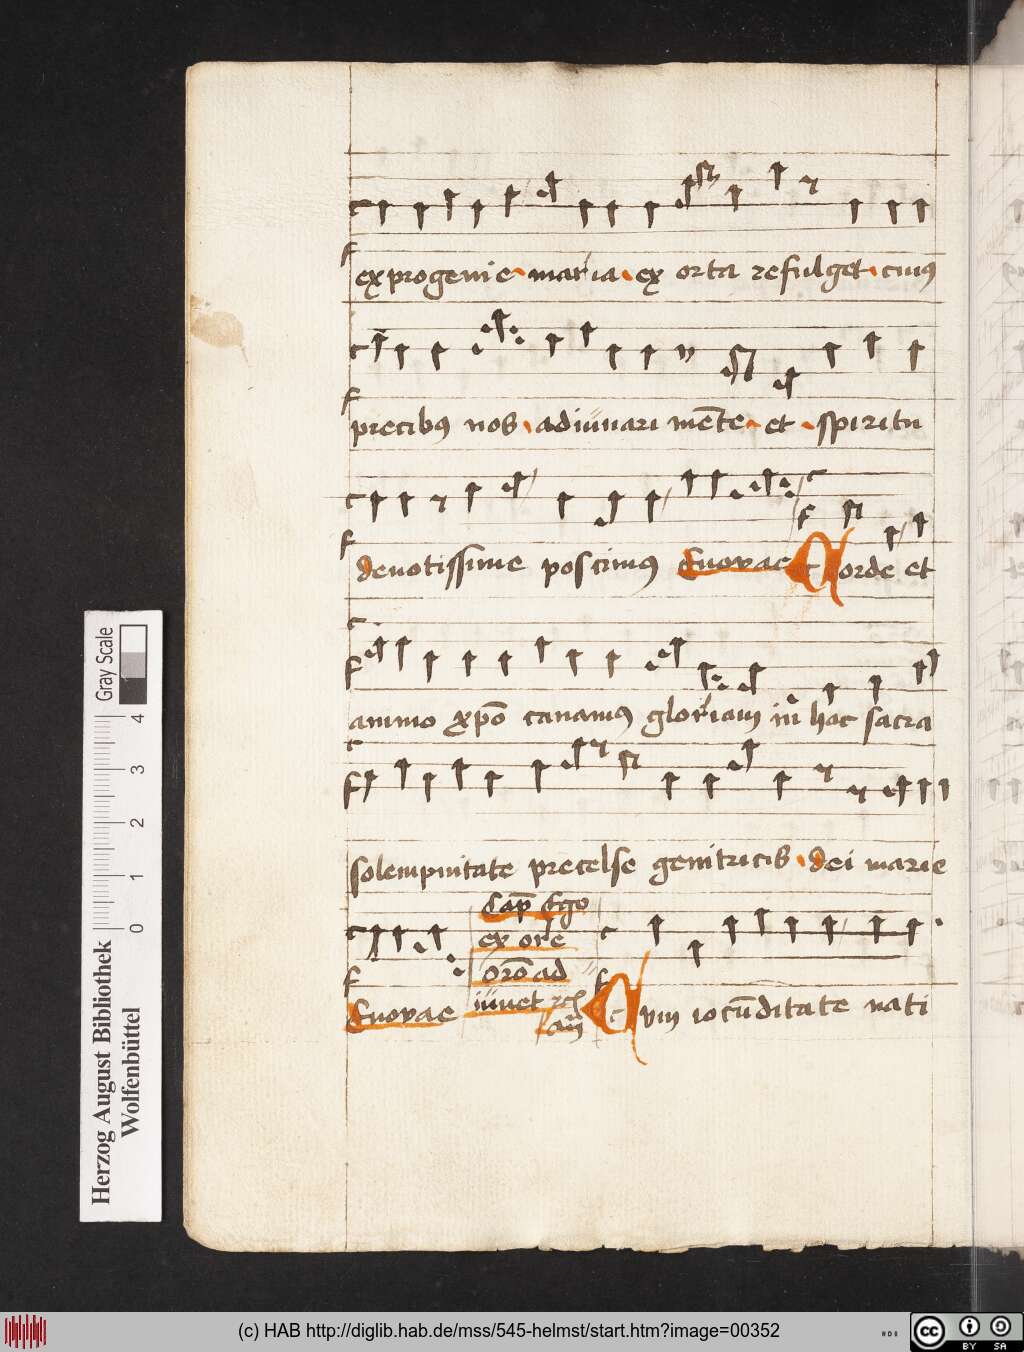 ex progenie maria ex orta refulget cuius
precibus nos adiuuari mēte et spiritu
deuotissime poscimus Euovae Corde et
animo xpō canamus gloriam in hac sacra
solempnitate precelse genitricis dei marie
Cap Ego
ex ore
Orō ad
iuuet
Euovae Cum iocūditate nati
Gray Scale
0 1 2 3 4
Herzog August Bibliothek
Wolfenbüttel
(c) HAB http://diglib.hab.de/mss/545-helmst/start.htm?image=00352
cc
BY SA